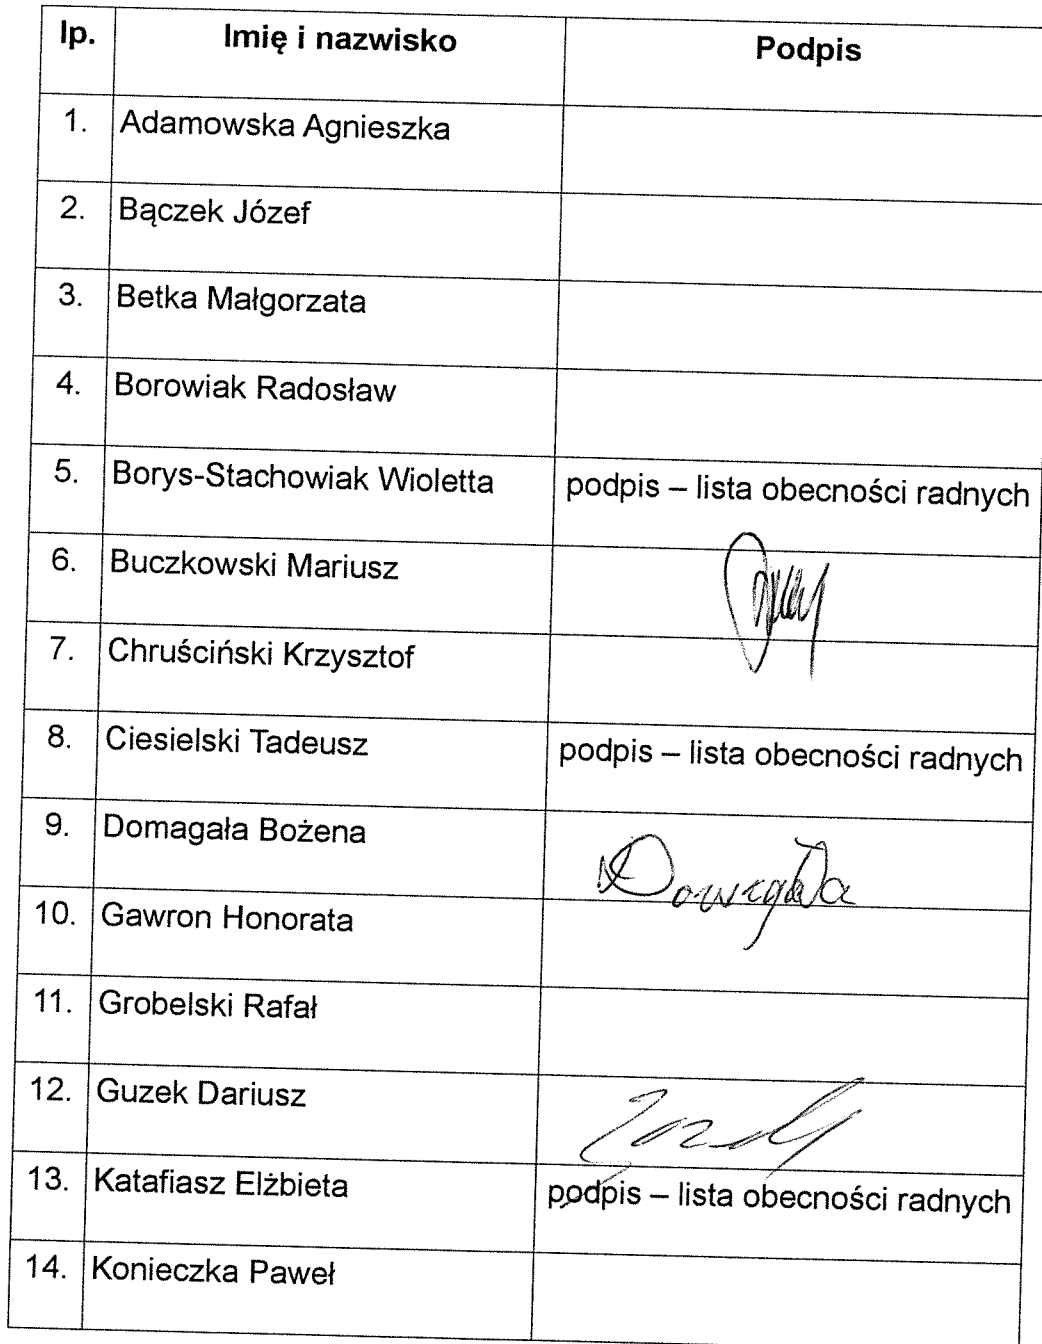 lp. Imię i nazwisko Podpis
1. Adamowska Agnieszka
2. Bączek Józef
3. Betka Małgorzata
4. Borowiak Radosław
5. Borys-Stachowiak Wioletta podpis – lista obecności radnych
6. Buczkowski Mariusz
7. Chruściński Krzysztof
8. Ciesielski Tadeusz podpis – lista obecności radnych
9. Domagała Bożena Domagała
10. Gawron Honorata
11. Grobelski Rafał
12. Guzek Dariusz
13. Katafiasz Elżbieta podpis – lista obecności radnych
14. Konieczka Paweł